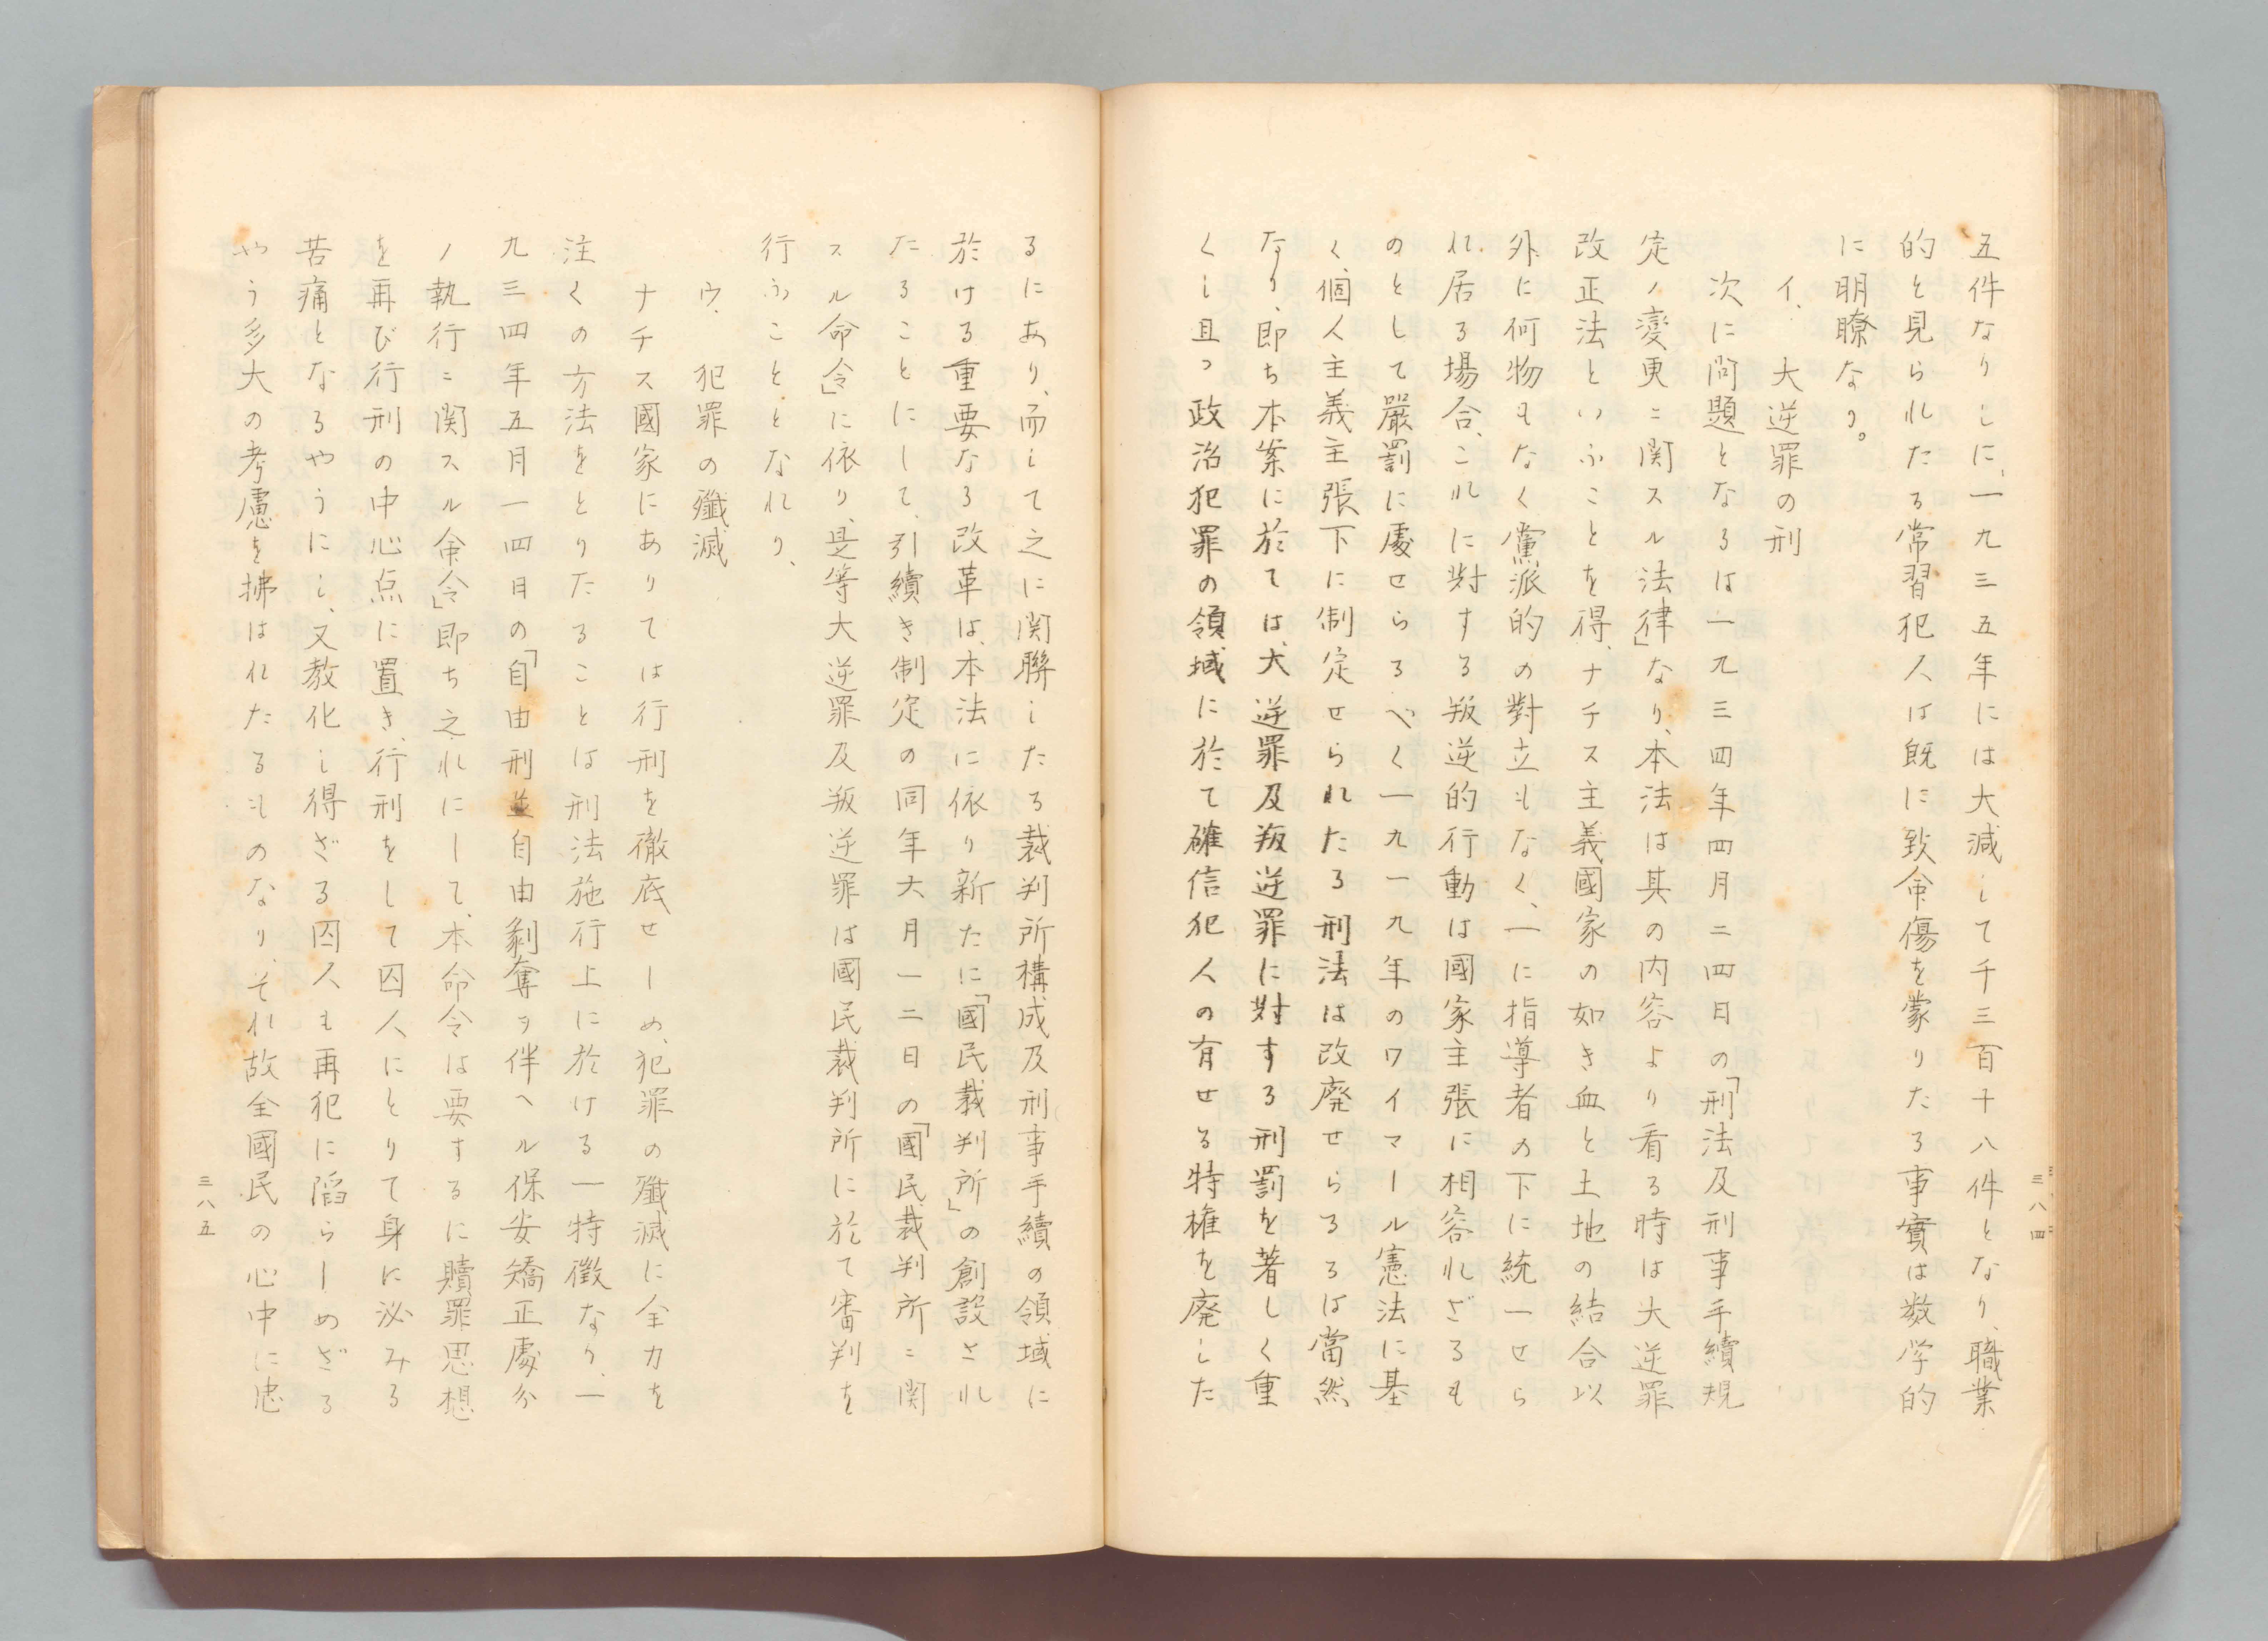 三八四
五件なりしに、一九三五年には大減して千三百十八件となり、職業
的と見られたる常習犯人は既に致命傷を蒙りたる事實は数学的
に明瞭なり。
イ、大逆罪の刑
次に問題となるは一九三四年四月二四日の「刑法及刑事手續規
定ノ変更ニ関スル法律」なり、本法は其の内容より看る時は大逆罪
改正法といふことを得、ナチス主義國家の如き血と土地の結合以
外に何物もなく黨派的の對立もなく、一に指導者の下に統一せら
れ居る場合、これに對する叛逆的行動は國家主張に相容れざるも
のとして嚴罰に處せらるべく一九一九年のワイマール憲法に基
く、個人主義主張下に制定せられたる刑法は改廃せらるるは當然
なり、即ち本案に於ては、大逆罪及叛逆罪に対する刑罰を著しく重
くし且つ政治犯罪の領域に於て確信犯人の有せる特権を廃した
るにあり、而して之に関聯したる裁判所構成及刑事手續の領域に
於ける重要なる改革は、本法に依り新たに「國民裁判所」の創設され
たることにして、引續き制定の同年大月一二日の「國民裁判所ニ関
スル命令」に依り、是等大逆罪及叛逆罪は國民裁判所に於て審判を
行ふこととなれり、
ウ、犯罪の殲滅
ナチス國家にありては行刑を徹底せしめ、犯罪の殲滅に全力を
注くの方法をとりたることは刑法施行上に於ける一特徴なり、一
九三四年五月一四日の「自由刑並自由剝奪ヲ伴ヘル保安矯正處分
ノ執行ニ関スル命令」即ち之れにして、本命令は要するに贖罪思想
を再び行刑の中心点に置き、行刑をして囚人にとりて身に泌みる
苦痛となるやうにし、又教化し得ざる囚人も再犯に陥らしめざる
やう多大の考慮を拂はれたるものなり、それ故全國民の心中に忠
三八五